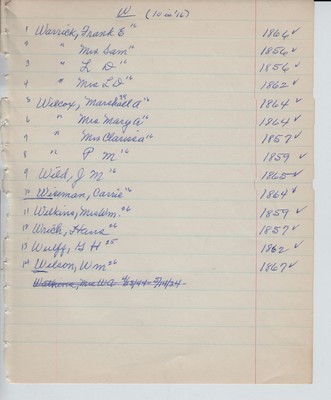 W (10 in '16)
1 Warrick, Frank E '16 1864 ✓
2 " Mrs Sam '16 1856 ✓
3 " L D '16 1856 ✓
4 " Mrs L D '16 1862 ✓
5 Wilcox, Marshall A '16 1864 ✓
6 " Mrs Mary A '16 1864 ✓
7 " Mrs Clarissa '16 1857 ✓
8 " P M '16 1859 ✓
9 Wild, J M '16 1865 ✓
10 Wiseman, Carrie '16 1864 ✓
11 Wilkins, Mrs Wm. '26 1859 ✓
12 Wrich, Hans '26 1857 ✓
13 Wulff, G H '25 1862 ✓
14 Wilson, Wm '26 1867 ✓
Watkins, Mrs W G